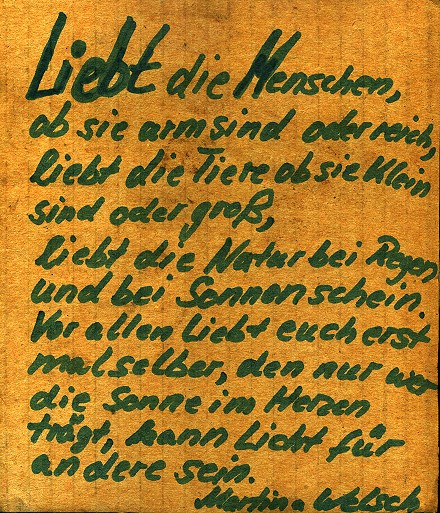 Liebt die Menschen,
ob sie arm sind oder reich,
liebt die Tiere ob sie Klein
sind oder groß,
liebt die Natur bei Regen
und bei Sonnenschein.
Vor allen Liebt euch erst
mal selber, den nur wer
die Sonne im Herzen
trägt, kann Licht für
andere sein.
Martina Welsch